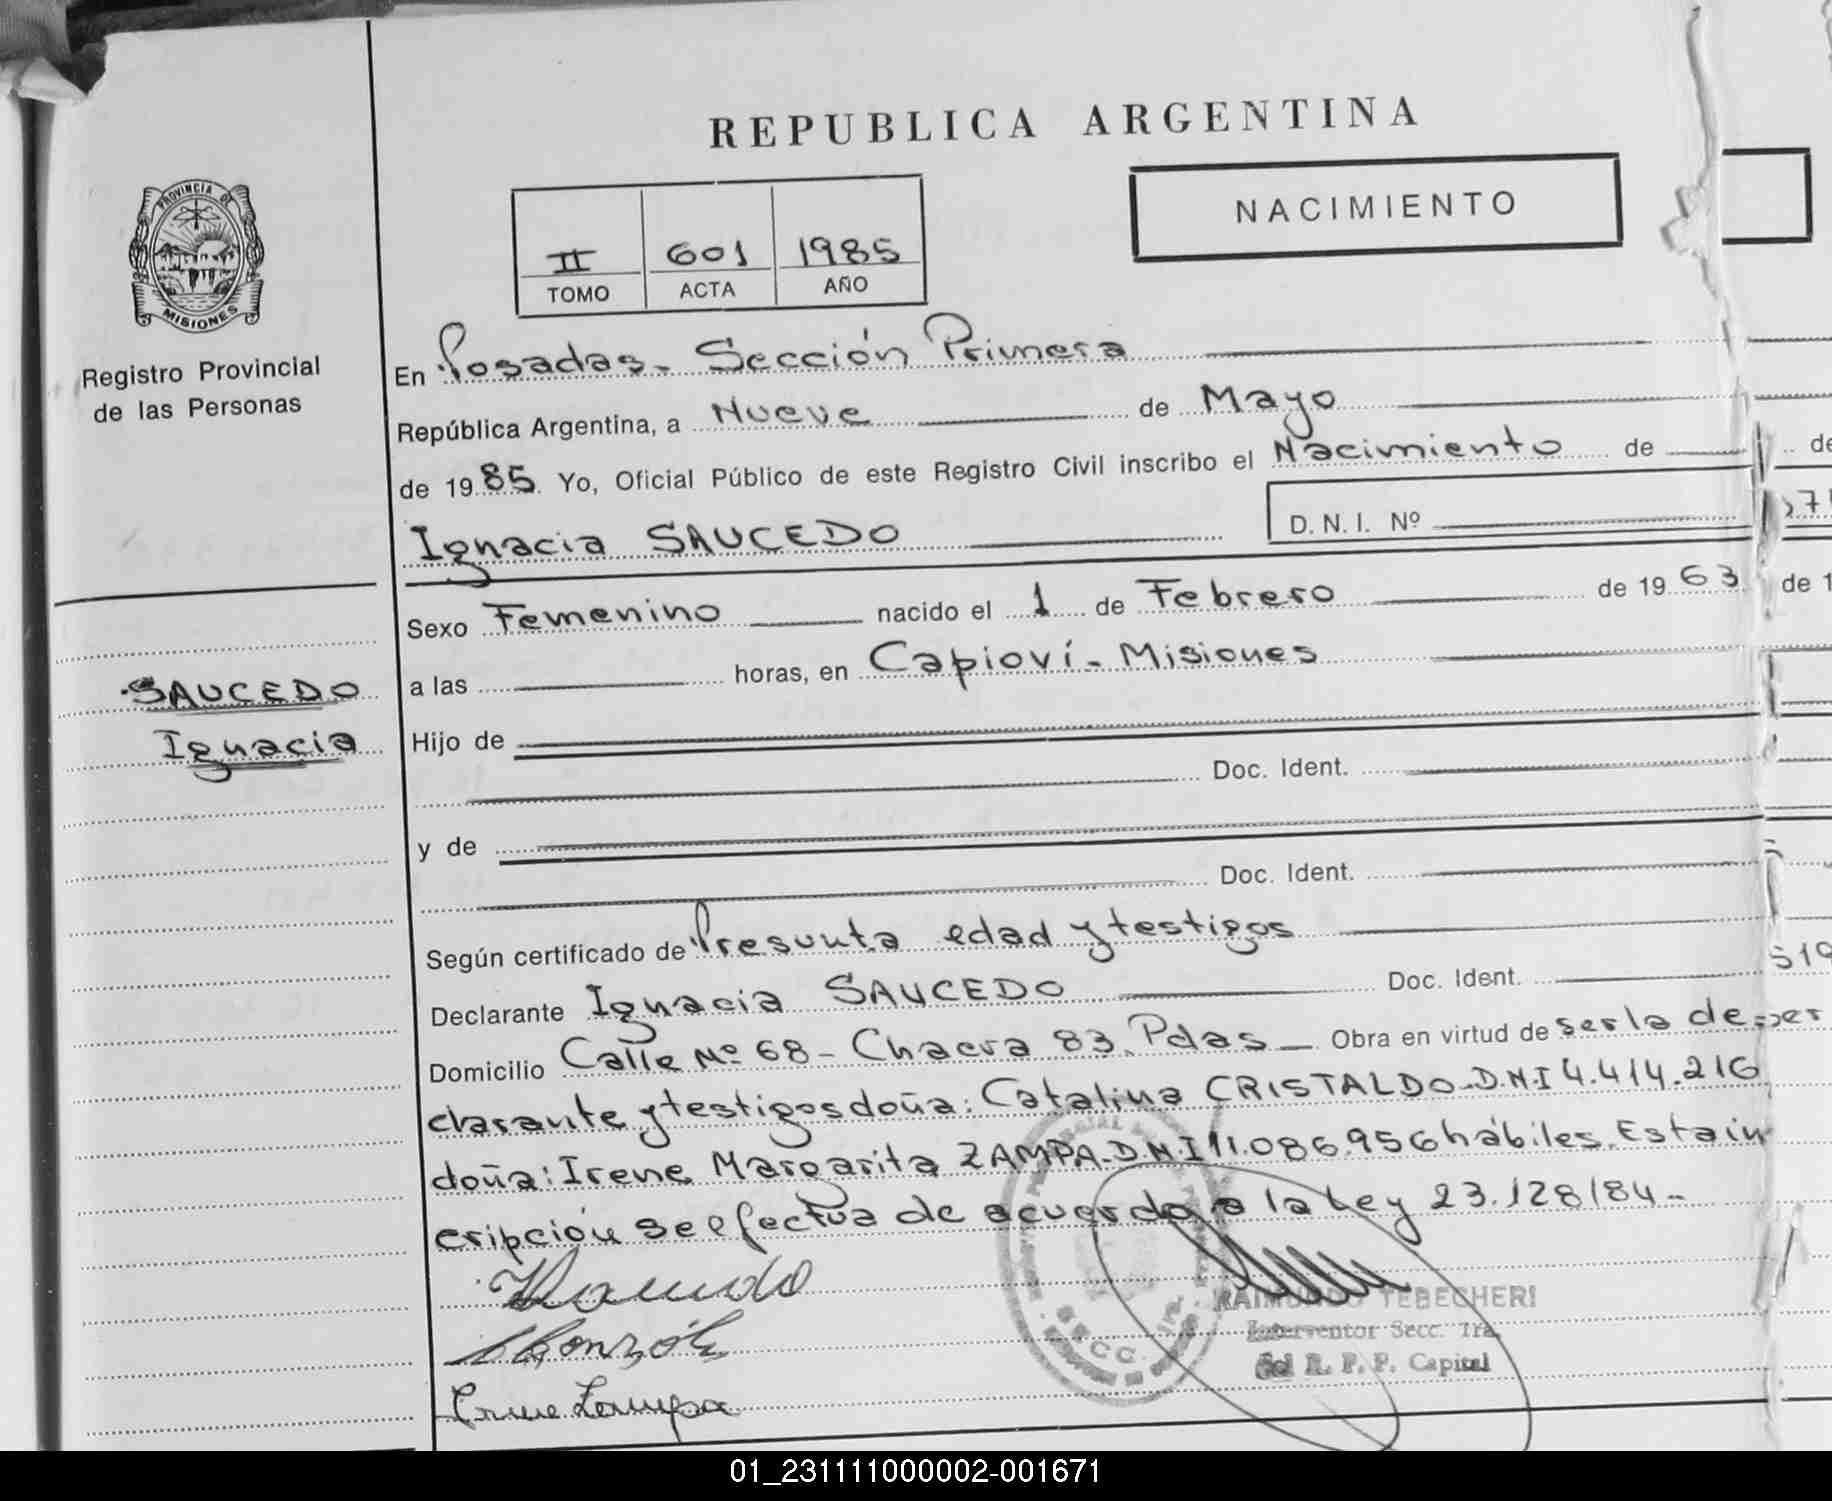 REPUBLICA ARGENTINA
NACIMIENTO
II 601 1985
TOMO ACTA AÑO
PROVINCIA DE
MISIONES
Registro Provincial
de las Personas
En Posadas - Sección Primera
República Argentina, a Nueve de Mayo
de 1985. Yo, Oficial Público de este Registro Civil inscribo el Nacimiento de
Ignacia SAUCEDO
D. N. I. Nº
Sexo Femenino nacido el 1 de Febrero de 1963 de 1
SAUCEDO
Ignacia
a las horas, en Capioví - Misiones
Hijo de
Doc. Ident.
y de
Doc. Ident.
Según certificado de Presunta edad y testigos
Declarante Ignacia SAUCEDO Doc. Ident.
Domicilio Calle Nº 68 - Chacra 83. Pdas - Obra en virtud de ser la de
clarante y testigos doña: Catalina CRISTALDO - D.N.I 4.414.216
doña: Irene Margarita ZAMPA - D.N.I 11.086.956 hábiles. Esta in
cripción se efectua de acuerdo a la Ley 23.128/84 -
RAIMUNDO TEBECHERI
Interventor Secc. 1ra.
del R. P. P. Capital
SECC. 1ra.
Irene Zampa
01_231111000002-001671